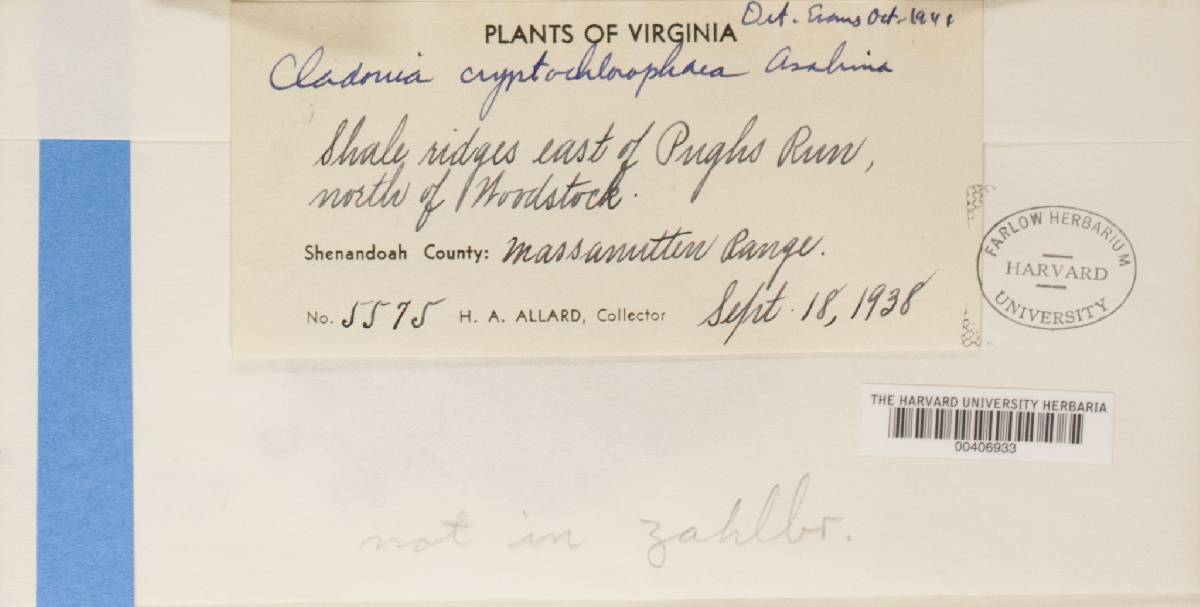 Det. Evans Oct. 1941
PLANTS OF VIRGINIA
Cladonia cryptochlorophaea Asahina
Shale ridges east of Pughs Run,
north of Woodstock.
Shenandoah County: Massanutten Range.
No. 5575 H. A. ALLARD, Collector Sept. 18, 1938
FARLOW HERBARIUM
HARVARD
UNIVERSITY
THE HARVARD UNIVERSITY HERBARIA
00406933
not in zahlbr.